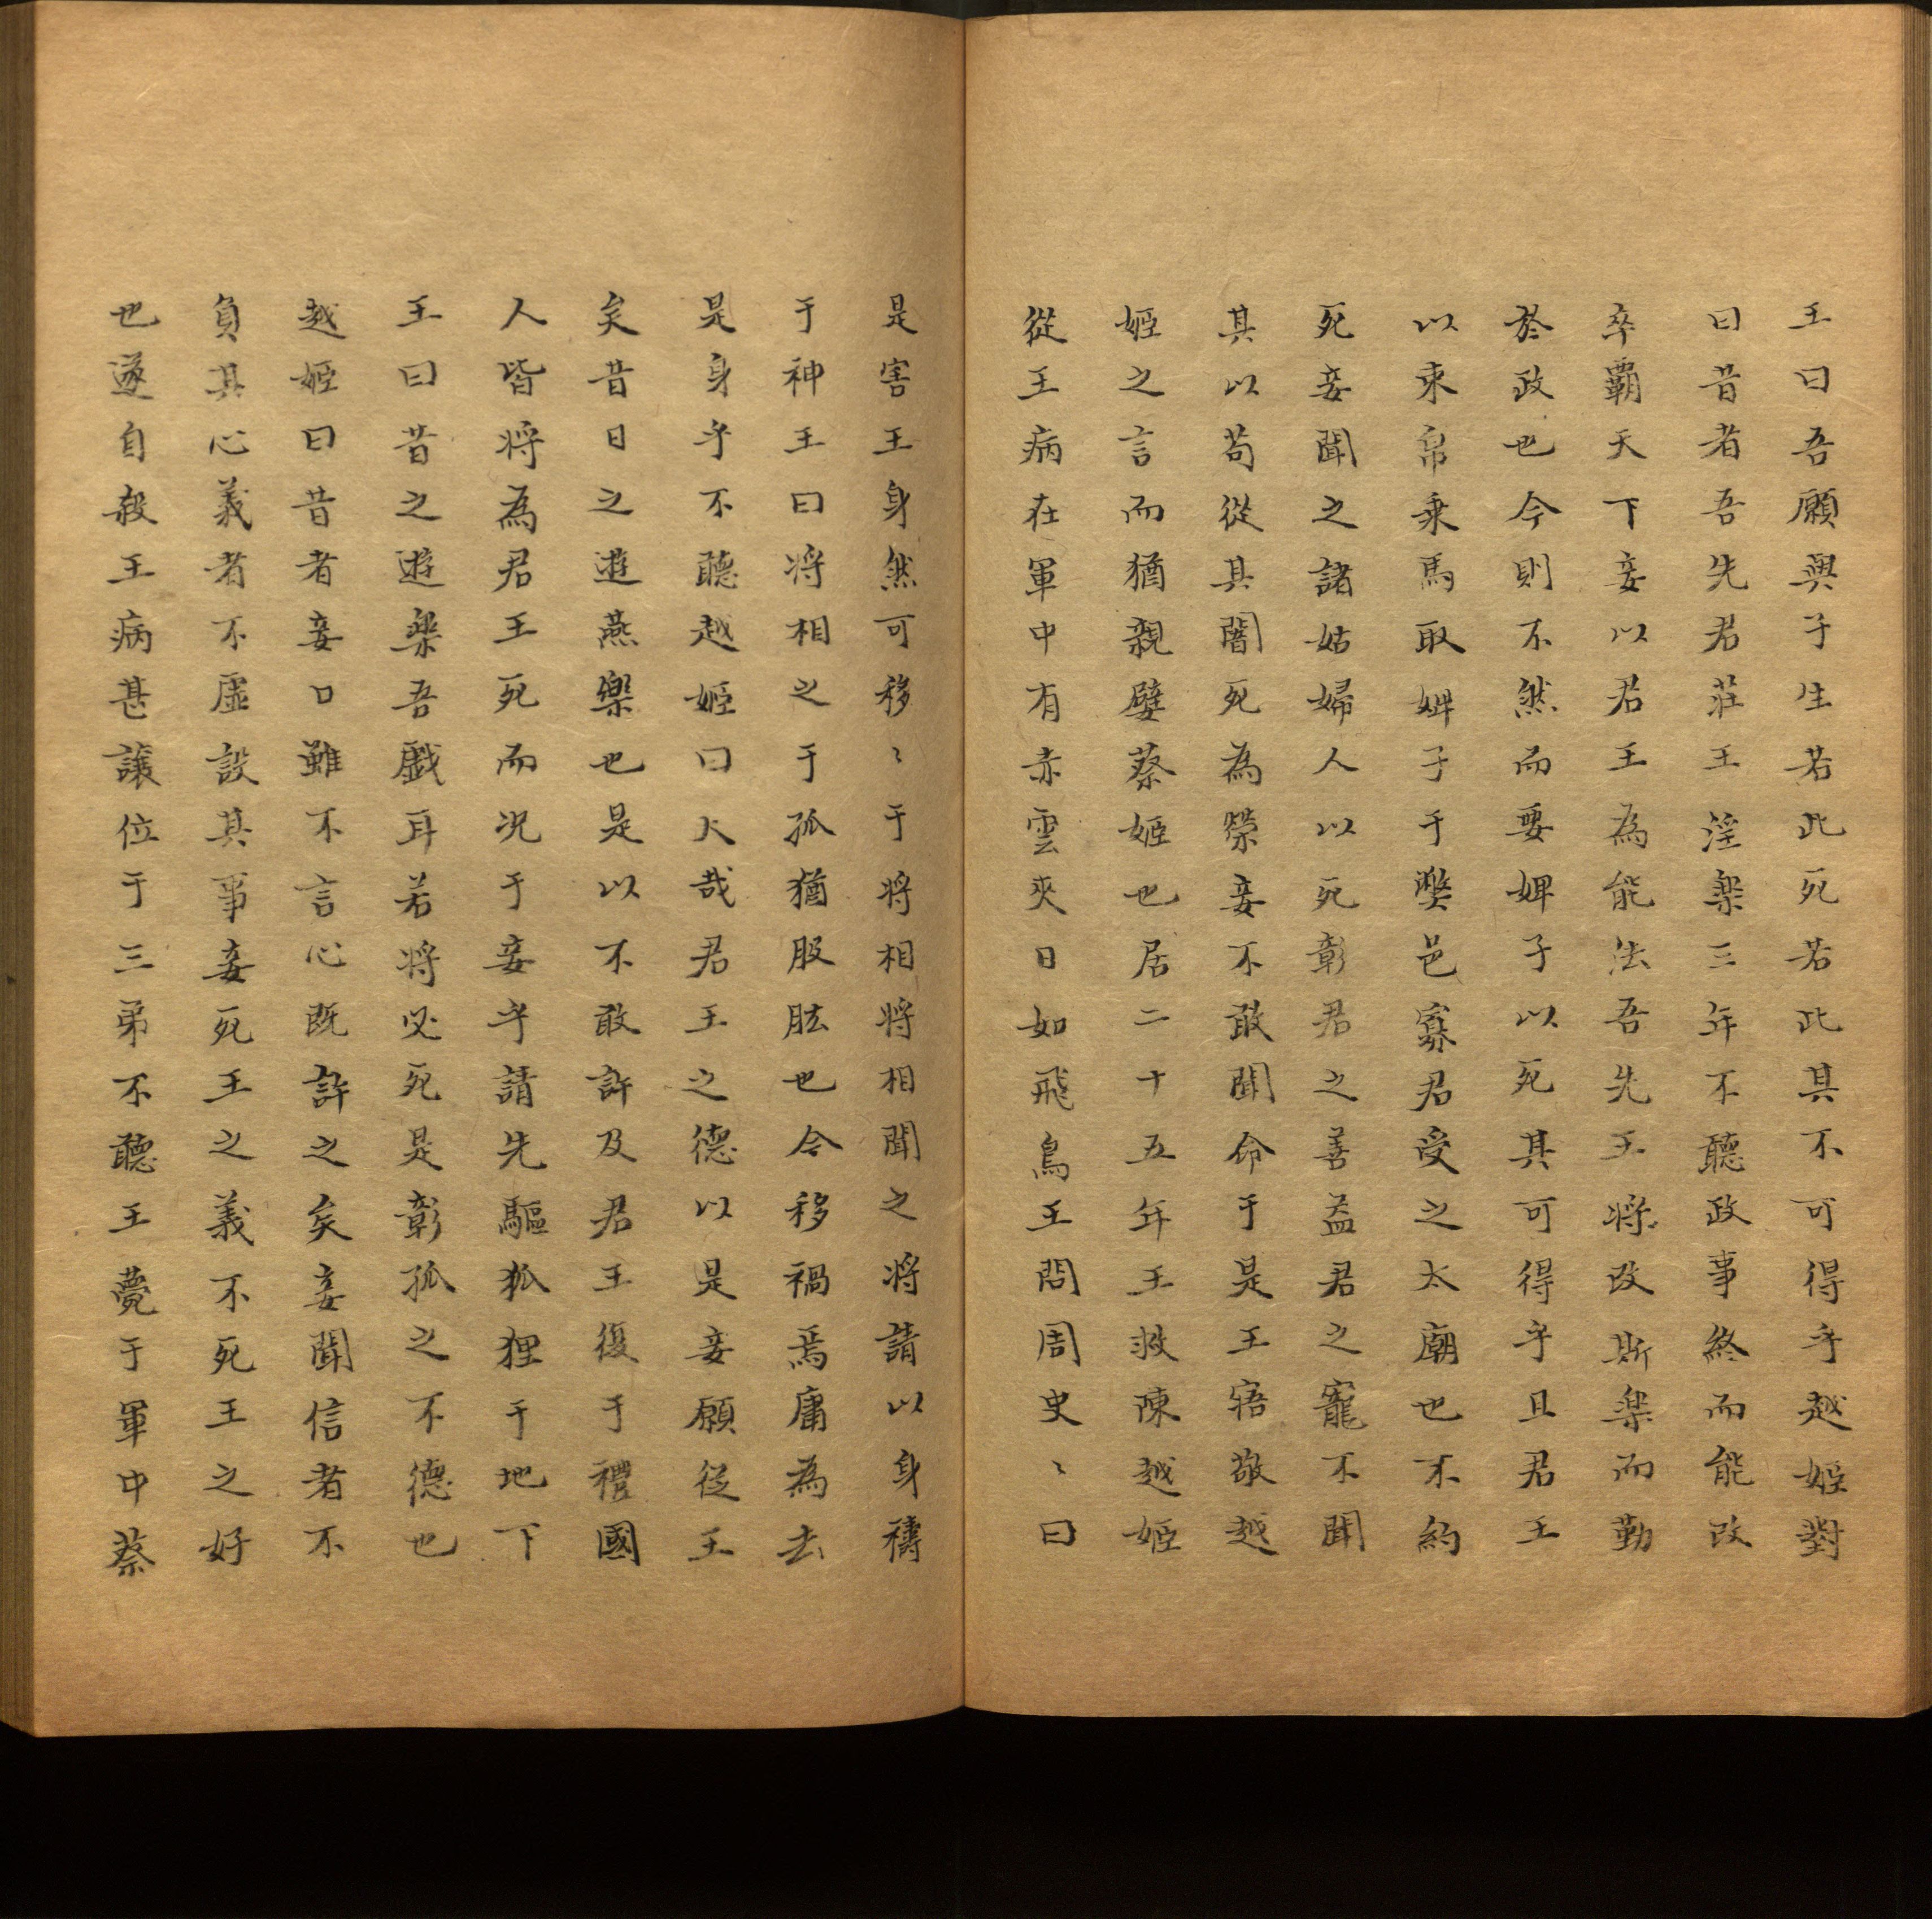 王曰吾願與子生若此死若此其不可得乎越姬對
曰昔者吾先君莊王淫樂三年不聽政事終而能改
卒霸天下妾以君王為能法吾先王将改斯樂而勤
於政也今則不然而要婢子以死其可得乎且君王
以束帛乘馬取婢子于獘邑寡君受之太廟也不約
死妾聞之諸姑婦人以死彰君之善益君之寵不聞
其以苟從其闇死為榮妾不敢聞命于是王寤敬越
姬之言而猶親嬖蔡姬也居二十五年王救陳越姬
從王病在軍中有赤雲夾日如飛鳥王問周史〻曰
是害王身然可移〻于将相将相聞之将請以身禱
于神王曰将相之于孤猶股肱也今移禍焉庸為去
是身乎不聽越姬曰大哉君王之德以是妾願從王
矣昔日之遊燕樂也是以不敢許及君王復于禮國
人皆将為君王死而况于妾乎請先驅狐狸于地下
王曰昔之遊樂吾戲耳若将必死是彰孤之不德也
越姬曰昔者妾口雖不言心既許之矣妾聞信者不
負其心義者不虛設其事妾死王之義不死王之好
也遂自殺王病甚讓位于三弟不聽王薨于軍中蔡